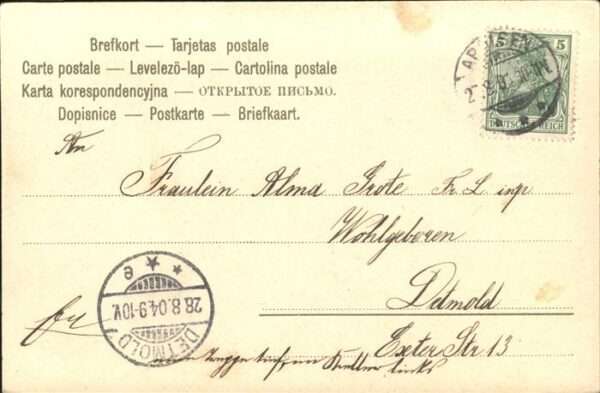 Brefkort — Tarjetas postale
Carte postale — Levelezö-lap — Cartolina postale
Karta korespondencyjna — ОТКРЫТОЕ ПИСЬМО.
Dopisnice — Postkarte — Briefkaart.
5 5
DEUTSCHES REICH
An
Fräulein Alma Grote
Wohlgeboren
Detmold
Exter Str 13
links
DETMOLD
28.8.04.9-10V.
e